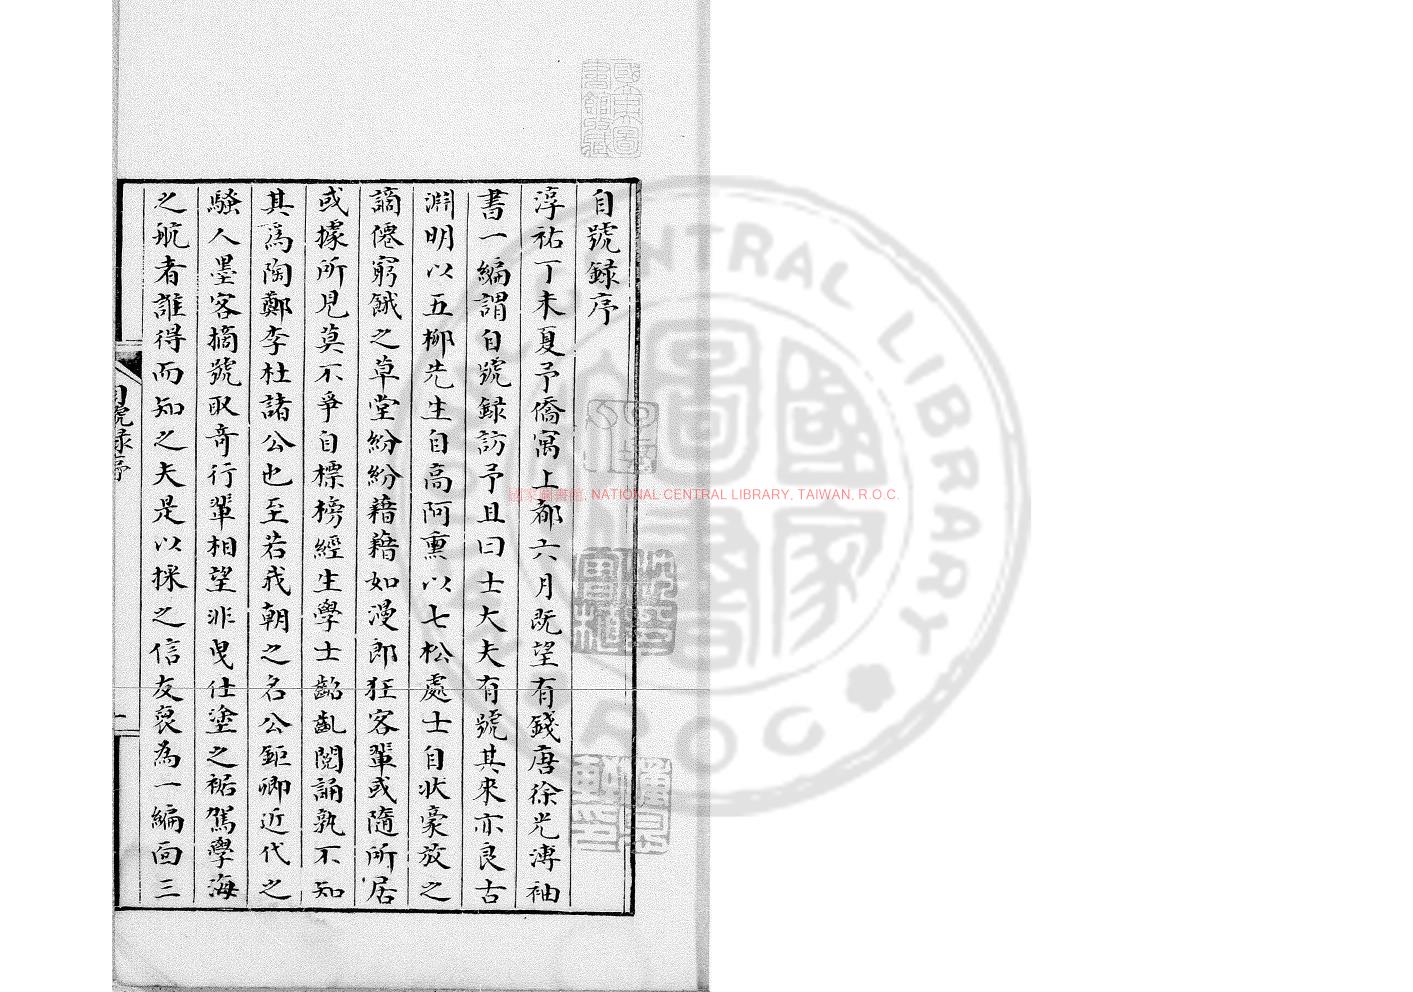 自號録序
淳祐丁未夏予僑寓上都六月既望有錢唐徐光溥袖
書一編謂自號録訪予且曰士大夫有號其來亦良古
淵明以五柳先生自高阿熏以七松處士自狀豪放之
謫僊窮餓之草堂紛紛藉藉如漫郎狂客輩或隨所居
或據所見莫不爭自標榜經生學士齠齔閱誦孰不知
其爲陶鄭李杜諸公也至若我朝之名公鉅卿近代之
騷人墨客摘號取奇行輩相望非曳仕塗之裾駕學海
之航者誰得而知之夫是以採之信友裒為一編面三
自號録序
一
國家圖書館藏
國家圖書館, NATIONAL CENTRAL LIBRARY, TAIWAN, R.O.C.
CENTRAL LIBRARY
R O C